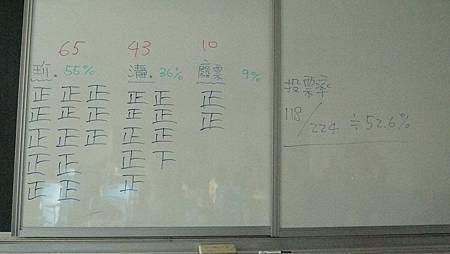 65 43 10
珩. 55% 清. 36% 廢票 9%
正 正 正 正 正 正
正 正 正 正 正 正
正 正 正 正 正
正 正 正 下
正 正 正
投票率
118/224 ≒ 52.6%